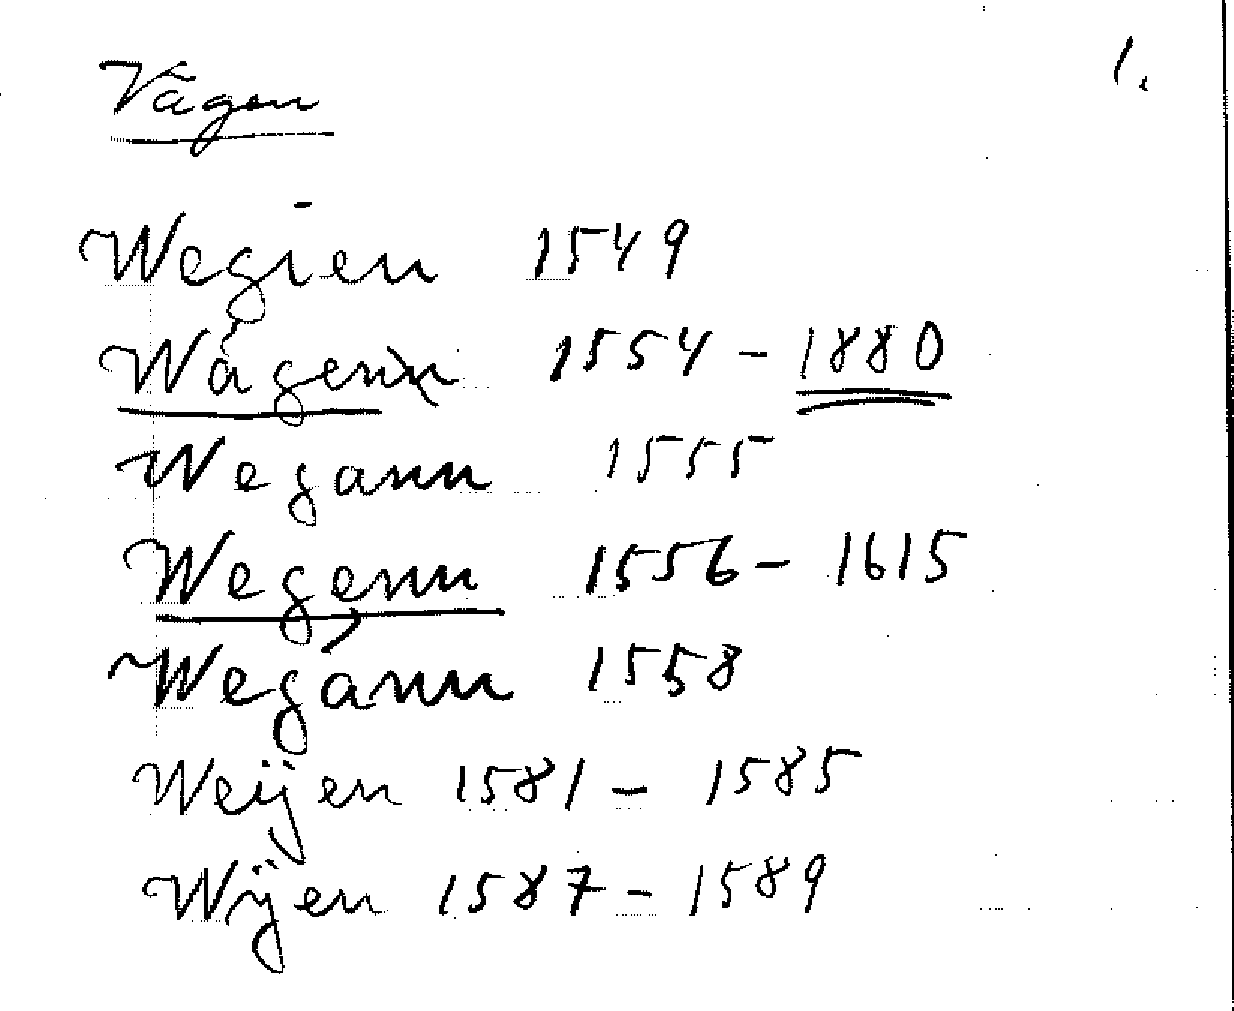 1.
Vågen
Wegien 1549
Wågen 1554 - 1880
Wegann 1555
Wegenn 1556 - 1615
Wegånn 1558
Weijen 1581 - 1585
Wijen 1587 - 1589